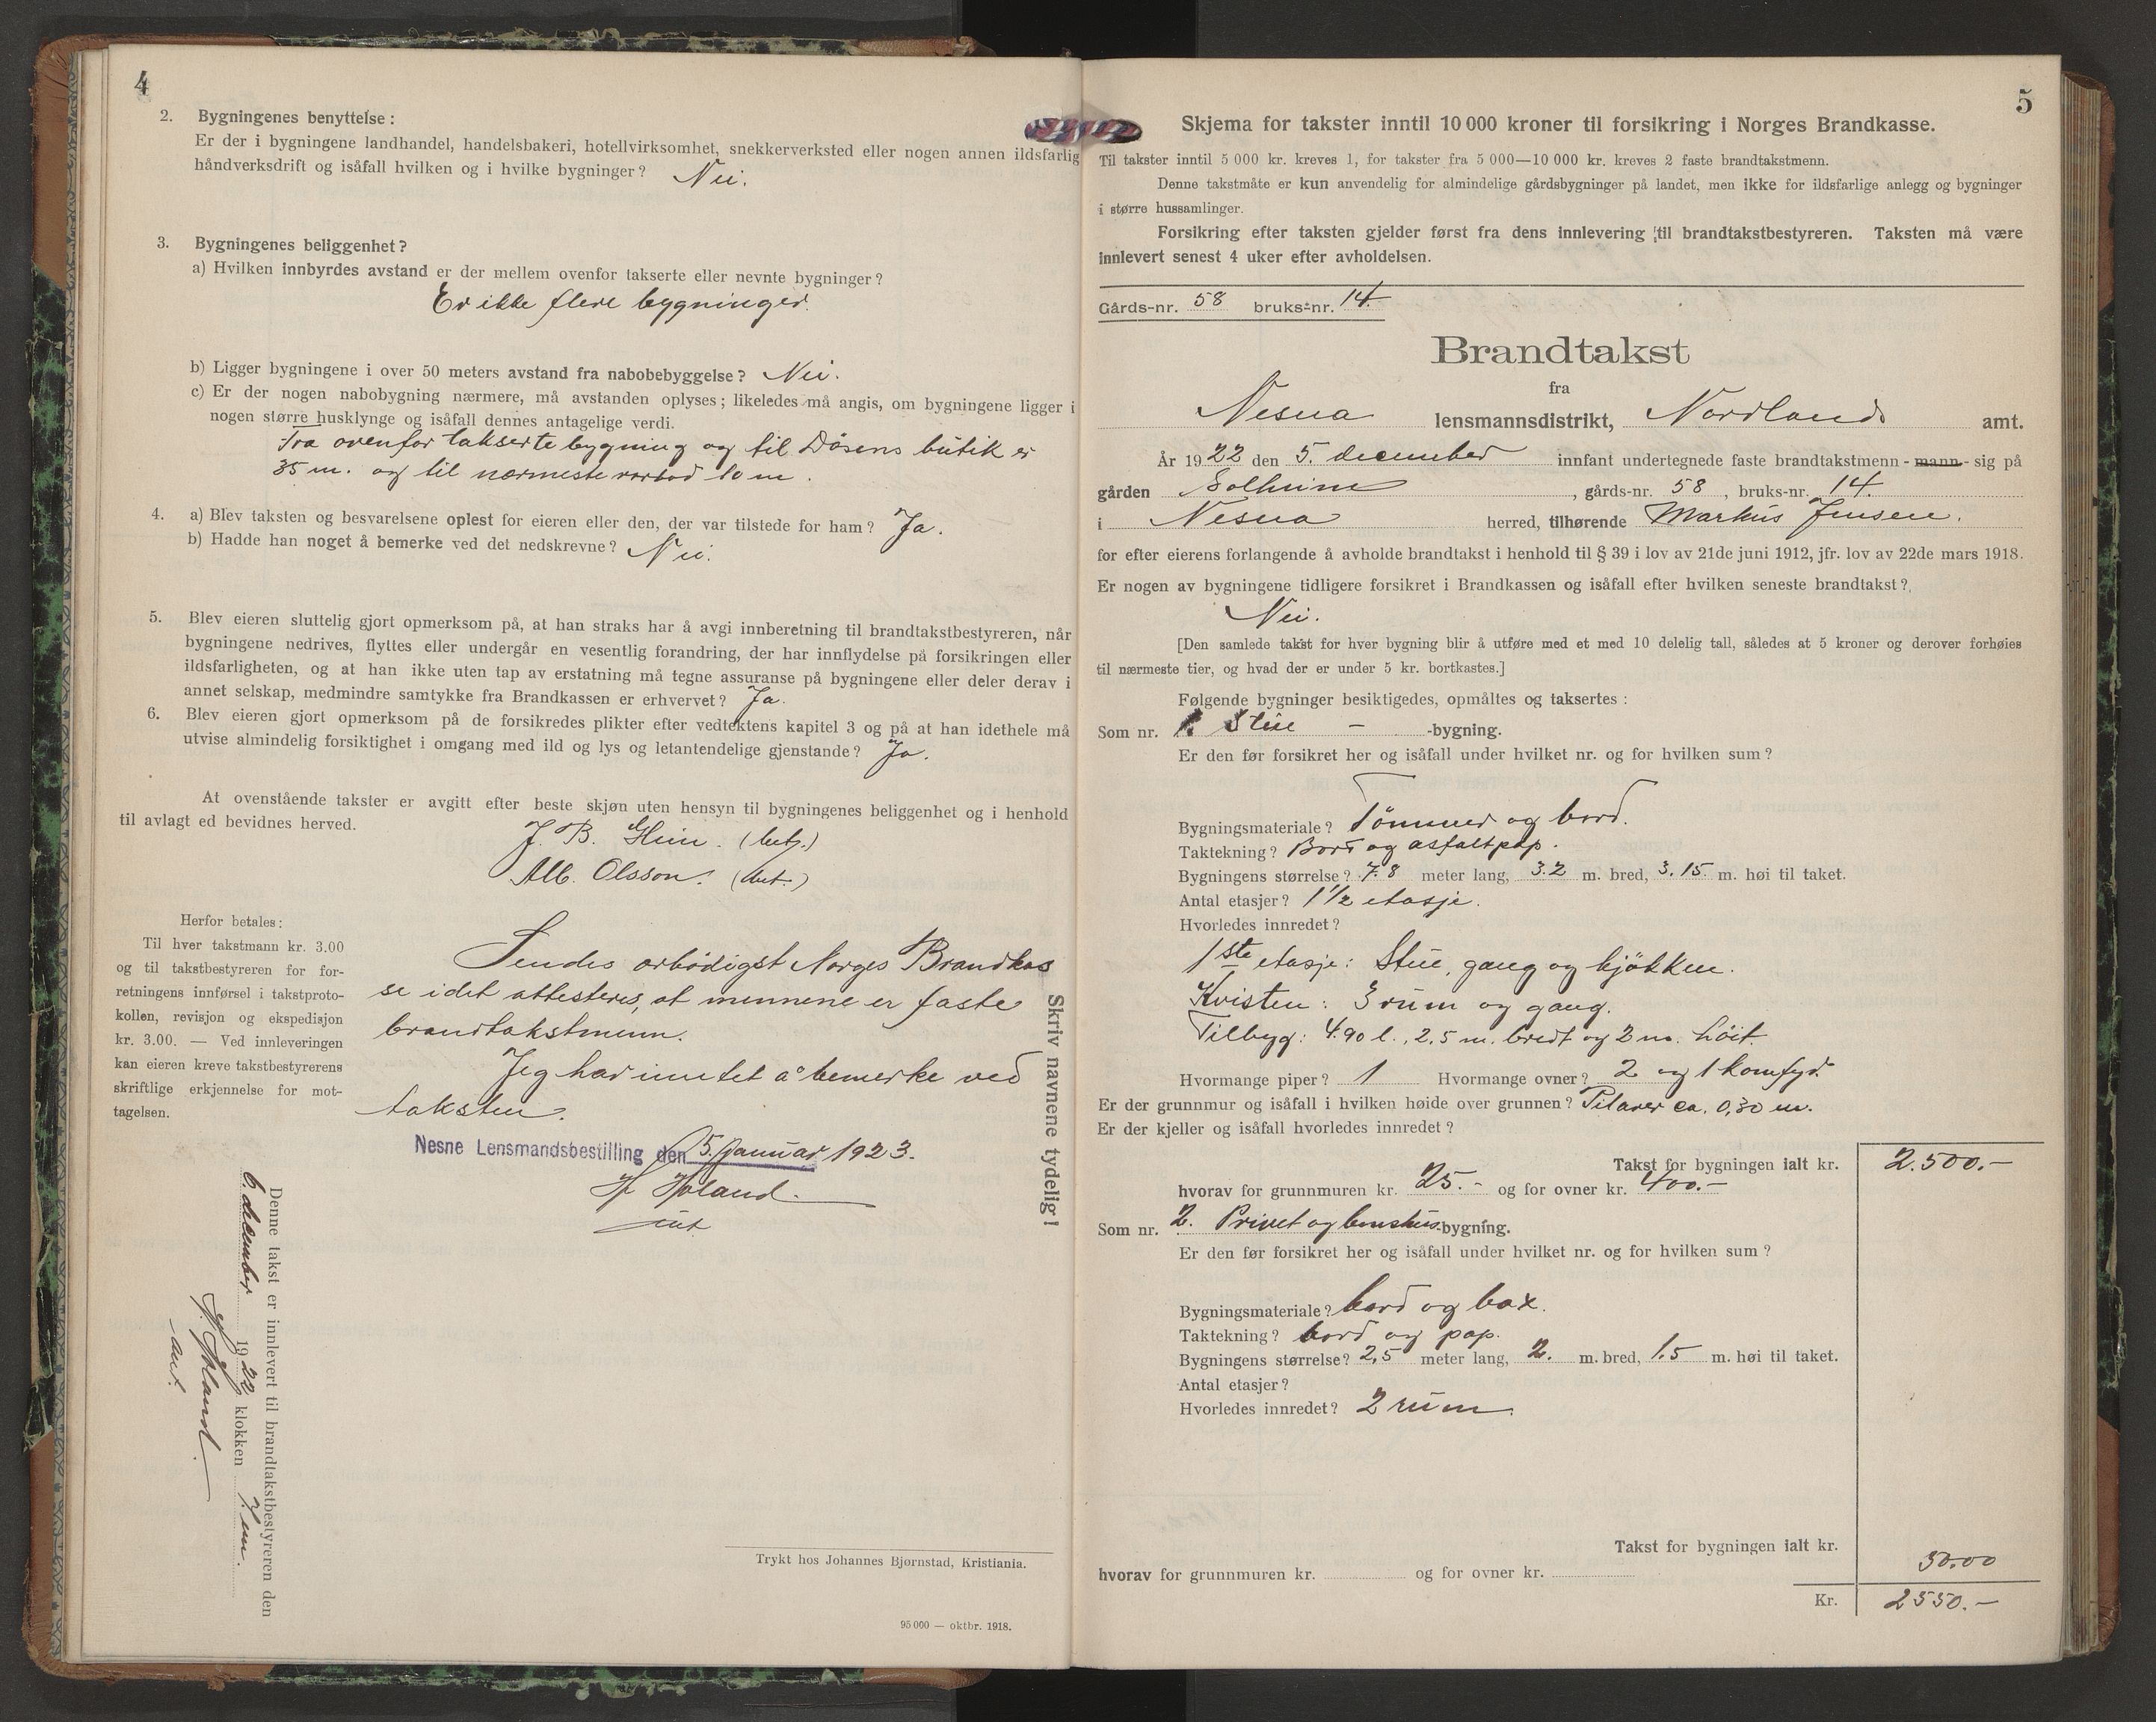 4
2. Bygningenes benyttelse:
Er der i bygningene landhandel, handelsbakeri, hotellvirksomhet, snekkerverksted eller nogen annen ildsfarlig
håndverksdrift og isåfall hvilken og i hvilke bygninger? Nei.
3. Bygningenes beliggenhet?
a) Hvilken innbyrdes avstand er der mellem ovenfor takserte eller nevnte bygninger?
Er ikke flere bygninger.
b) Ligger bygningene i over 50 meters avstand fra nabobebyggelse? Nei.
c) Er der nogen nabobygning nærmere, må avstanden oplyses; likeledes må angis, om bygningene ligger i
nogen større husklynge og isåfall dennes antagelige verdi.
Fra ovenfor takserte bygning og til Dösens butik er
35 m. og til nærmeste 10 m.
4. a) Blev taksten og besvarelsene oplest for eieren eller den, der var tilstede for ham? Ja.
b) Hadde han noget å bemerke ved det nedskrevne? Nei.
5. Blev eieren sluttelig gjort opmerksom på, at han straks har å avgi innberetning til brandtakstbestyreren, når
bygningene nedrives, flyttes eller undergår en vesentlig forandring, der har innflydelse på forsikringen eller
ildsfarligheten, og at han ikke uten tap av erstatning må tegne assuranse på bygningene eller deler derav i
annet selskap, medmindre samtykke fra Brandkassen er erhvervet? Ja.
6. Blev eieren gjort opmerksom på de forsikredes plikter efter vedtektens kapitel 3 og på at han idethele må
utvise almindelig forsiktighet i omgang med ild og lys og letantendelige gjenstande? Ja.
At ovenstående takster er avgitt efter beste skjøn uten hensyn til bygningenes beliggenhet og i henhold
til avlagt ed bevidnes herved.
J. B. (sign.)
Alb. Olsson. (sign.)
Herfor betales:
Til hver takstmann kr. 3.00
og til takstbestyreren for for-
retningens innførsel i takstproto-
kollen, revisjon og ekspedisjon
kr. 3.00. — Ved innleveringen
kan eieren kreve takstbestyrerens
skriftlige erkjennelse for mot-
tagelsen.
Sendes ærbödigst Norges Brandkas
se idet attesteres, at mennene er faste
brandtakstmenn.
Jeg har inntet å bemerke ved
taksten.
Nesne Lensmandsbestilling den 5. januar 1923.
Høland.
Skriv navnene tydelig!
Denne takst er innlevert til brandtakstbestyreren den
6. december 1922 klokken
Høland.
Trykt hos Johannes Bjørnstad, Kristiania.
95 000 — oktbr. 1918.
5
Skjema for takster inntil 10 000 kroner til forsikring i Norges Brandkasse.
Til takster inntil 5 000 kr. kreves 1, for takster fra 5 000—10 000 kr. kreves 2 faste brandtakstmenn.
Denne takstmåte er kun anvendelig for almindelige gårdsbygninger på landet, men ikke for ildsfarlige anlegg og bygninger
i større hussamlinger.
Forsikring efter taksten gjelder først fra dens innlevering til brandtakstbestyreren. Taksten må være
innlevert senest 4 uker efter avholdelsen.
Gårds-nr. 58 bruks-nr. 14
Brandtakst
fra
Nesna lensmannsdistrikt, Nordlands amt.
År 1922 den 5. december innfant undertegnede faste brandtakstmenn - mann - sig på
gården Solheim, gårds-nr. 58, bruks-nr. 14.
i Nesna herred, tilhørende Markus Jensen.
for efter eierens forlangende å avholde brandtakst i henhold til § 39 i lov av 21de juni 1912, jfr. lov av 22de mars 1918.
Er nogen av bygningene tidligere forsikret i Brandkassen og isåfall efter hvilken seneste brandtakst?
Nei.
[Den samlede takst for hver bygning blir å utføre med et med 10 delelig tall, således at 5 kroner og derover forhøies
til nærmeste tier, og hvad der er under 5 kr. bortkastes.]
Følgende bygninger besiktigedes, opmåltes og taksertes:
Som nr. 1. Stue - -bygning.
Er den før forsikret her og isåfall under hvilket nr. og for hvilken sum?
Bygningsmateriale? Tömmer og bord.
Taktekning? Bord og asfaltpap.
Bygningens størrelse? 7.8 meter lang, 3.2 m. bred, 3.15 m. høi til taket.
Antal etasjer? 1 1/2 etasje.
Hvorledes innredet?
1ste etasje: Stue, gang og kjökken.
Kvisten: 3 rum og gang.
Tilbyg: 4.90 l., 2,5 m. bredt og 2 m. höit
Hvormange piper? 1 Hvormange ovner? 2 og 1 komfyr.
Er der grunnmur og isåfall i hvilken høide over grunnen? Pilarer ca. 0,30 m.
Er der kjeller og isåfall hvorledes innredet?
Takst for bygningen ialt kr. 2.500.-
hvorav for grunnmuren kr. 25.- og for ovner kr. 400.-
Som nr. 2. Privet og bygning.
Er den før forsikret her og isåfall under hvilket nr. og for hvilken sum?
Bygningsmateriale? bord og
Taktekning? bord og pap.
Bygningens størrelse? 2,5 meter lang, 2. m. bred, 1.5 m. høi til taket.
Antal etasjer?
Hvorledes innredet? 2 rum.
Takst for bygningen ialt kr. 50.00
hvorav for grunnmuren kr. og for ovner kr.
Kr. 2550.-